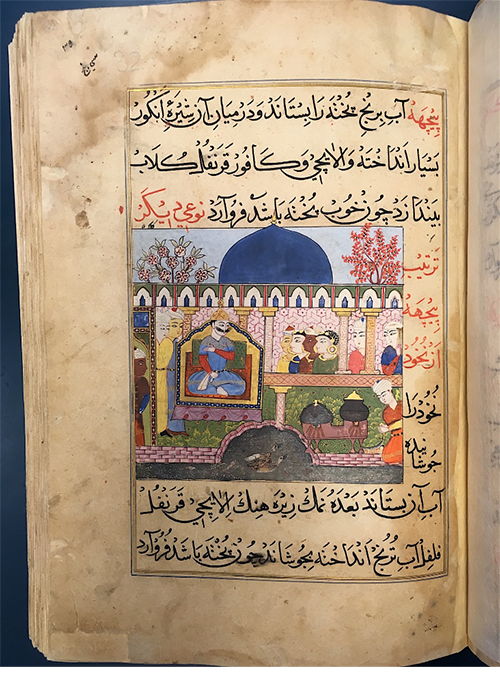 پیچهه آب برنج پخته را بستاند و در میان آن شیرهٔ انگور
بسیار انداخته و الایچی و کافور قرنفل کلاب
بیندازد چون خوب پخته باشد فرو آرد نوعی دیکر
ترتیب
پیچهه
از نخود
نخود را
جوشانیده
آب آن بستاند بعده نمک زیره هنک الایچی قرنفل
فلفل آب ترنج انداخته بجوشاند چون پخته باشد فرو آرد